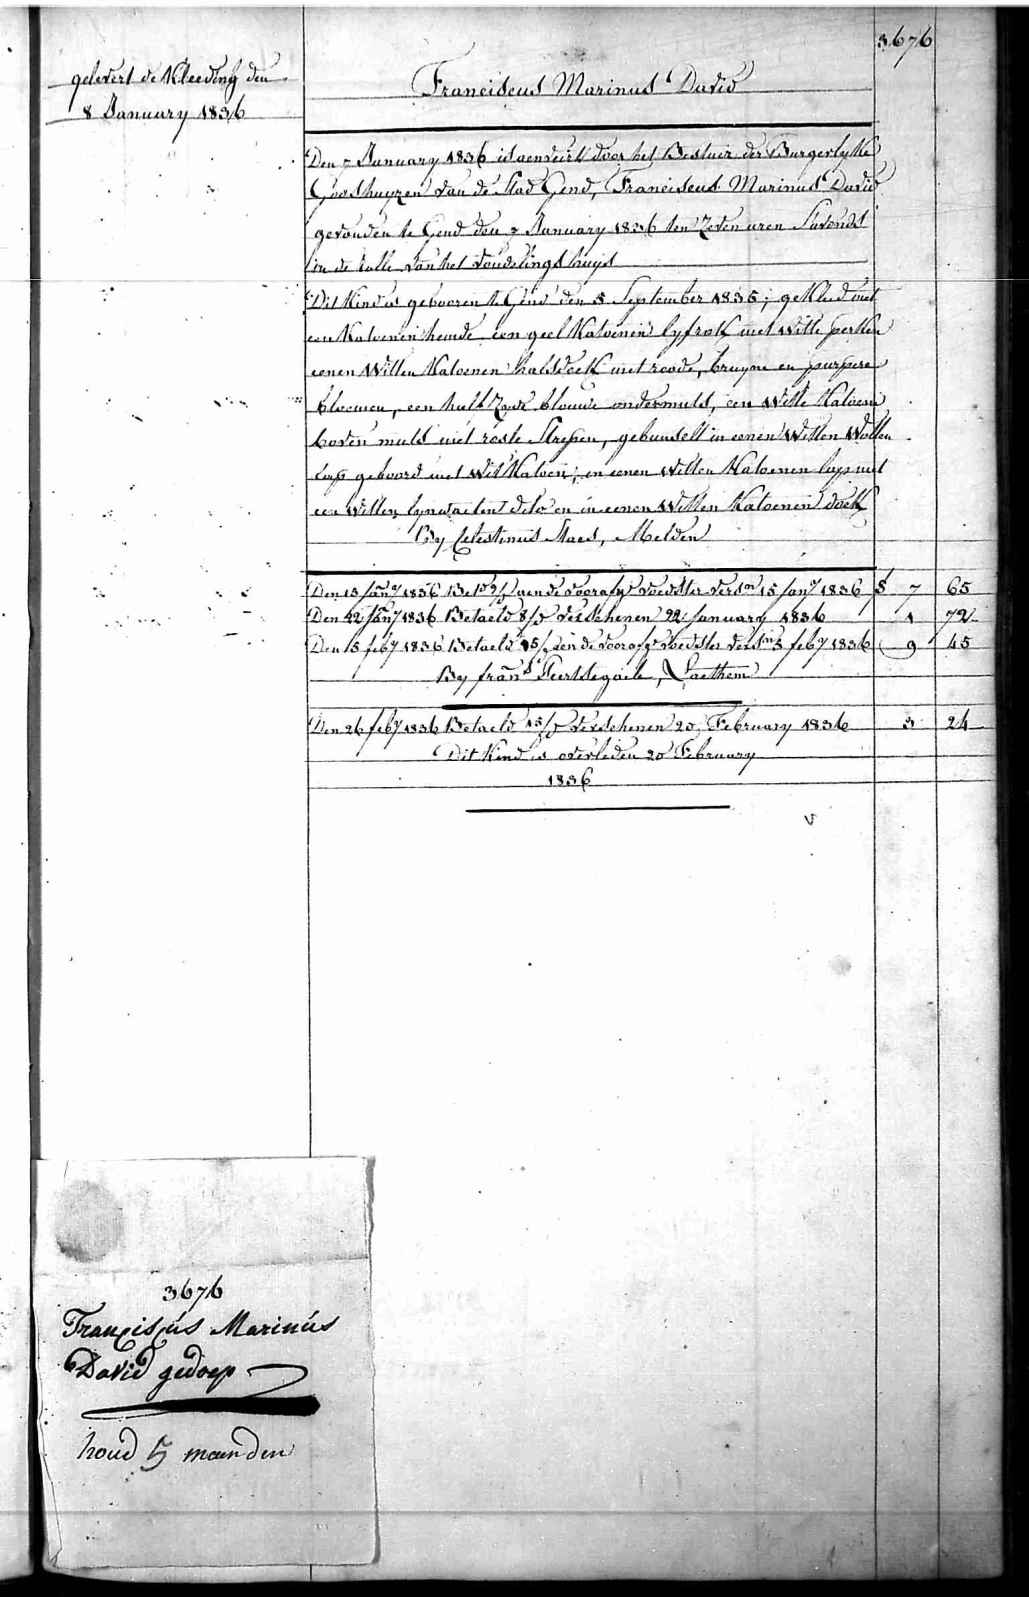 3676
gelevert de Kleeding den
8 January 1836
Franciscus Marinus David
Den 7 January 1836 is aenveirt door het Bestuur der Burgerlyke
Godshuyzen van de Stad Gend, Franciscus Marinus David
gevonden te Gend den 7 January 1836 ten Zeven uren Savonds
in de rolle van het vondelings huys
Dit Kind is gebooren te Gend den 5 September 1835; gekleed met
een Katoenen hemde een geel Katoenen lyfrok met Witte perken
eenen Witten Katoenen halsdoek met roode, bruyne en purpere
bloemen, een half Zyde blauwe ondermuts, een Witte Katoene
boven muts met roste Strepen, gebunselt in eenen Witten Wollen
lap geboord met Wit Katoen; in eenen Witten Katoenen lap met
een Witten lynwaeten delo en in eenen Witten Katoenen doek
By Celestinus Maes, Melden
Den 15 Jany 1836 aen de voorafge voedster 15 Jany 1836 f 7 65
Den 22 Jany 1836 Betaeld 8/d verschenen 22 January 1836 1 72
Den 15 feby 1836 Betaeld aen de voorafge voedster 5 feby 1836 9 45
By frans Laethem
Den 26 feby 1836 Betaeld 15/d verschenen 20 February 1836 3 24
Dit Kind is overleden 20 February
1836
3676
Franciscus Marinus
David gedoep
houd 5 maenden